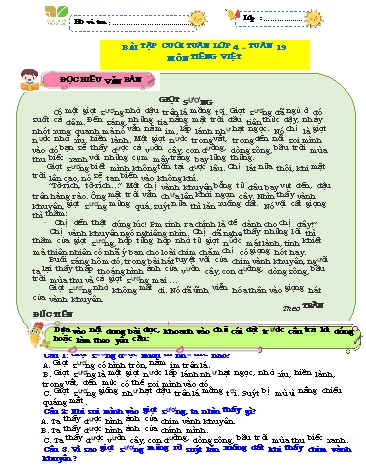 Họ và tên :
Lớp :
BÀI TẬP CUỐI TUẦN LỚP 4 - TUẦN 19
MÔN TIẾNG VIỆT
ĐỌC HIỂU VĂN BẢN
GIỌT SƯƠNG
Có một giọt sương nhỏ đậu trên lá mồng tơi. Giọt sương đã ngủ ở đó
suốt cả đêm. Đến sáng, những tia nắng mặt trời đầu tiên thức dậy, nhảy
nhót xung quanh mà nó vẫn nằm im, lấp lánh như hạt ngọc. Nó chỉ là giọt
nước nhỏ xíu, hiền lành. Một giọt nước trong vắt, trong đến nỗi soi mình
vào đó bạn sẽ thấy được cả vườn cây, con đường, dòng sông, bầu trời mùa
thu biếc xanh với những cụm mây trắng bay lững thững.
Giọt sương biết mình không tồn tại được lâu. Chỉ lát nữa thôi, khi mặt
trời lên cao, nó sẽ tan biến vào không khí.
“Tờ rích, tờ rích…” Một chị vành khuyên bỗng từ đâu bay vụt đến, đậu
trên hàng rào. Ông mặt trời vẫn chưa lên khỏi ngọn cây. Nhìn thấy vành
khuyên, giọt sương mừng quá, suýt nữa thì lăn xuống đất. Nó vời cất giọng
thì thầm:
- Chị đến thật đúng lúc! Em sinh ra chính là để dành cho chị đấy!
Chị vành khuyên ngó nghiêng nhìn. Chị đã nghe thấy những lời thì
thầm của giọt sương, hớp từng hớp nhỏ từ giọt nước mát lành, tinh khiết
mà thiên nhiên có nhã ý ban cho loài chim chăm chỉ có giọng hót hay.
Buổi sáng hôm đó, trong bài hát tuyệt vời của chim vành khuyên, người
ta lại thấy thấp thoáng hình ảnh của vườn cây, con đường, dòng sông, bầu
trời mùa thu và cả giọt sương mai…
Giọt sương nhỏ không mất đi. Nó đã vĩnh viễn hóa thân vào giọng hát
của vành khuyên.
Theo TRẦN
ĐỨC TIẾN
Dựa vào nội dung bài đọc, khoanh vào chữ cái đặt trước câu trả lời đúng
hoặc làm theo yêu cầu:
A. Giọt sương có hình tròn, nằm im trên lá.
B. Giọt sương là một giọt nước lấp lánh như hạt ngọc, nhỏ xíu, hiền lành,
trong vắt, đến mức có thể soi mình vào đó.
C. Giọt sương giống như hạt đậu trên lá mồng tơi. Suýt bị mù vì nắng chiếu
quáng mắt.
Câu 2: Khi soi mình vào giọt sương, ta nhìn thấy gì?
A. Ta thấy được hình ảnh của chim vành khuyên.
B. Ta thấy được hình ảnh của mình.
C. Ta thấy được vườn cây, con đường, dòng sông, bầu trời mùa thu biếc xanh.
Câu 3. Vì sao giọt sương mừng rỡ suýt lăn xuống đất khi thấy chim vành
khuyên?